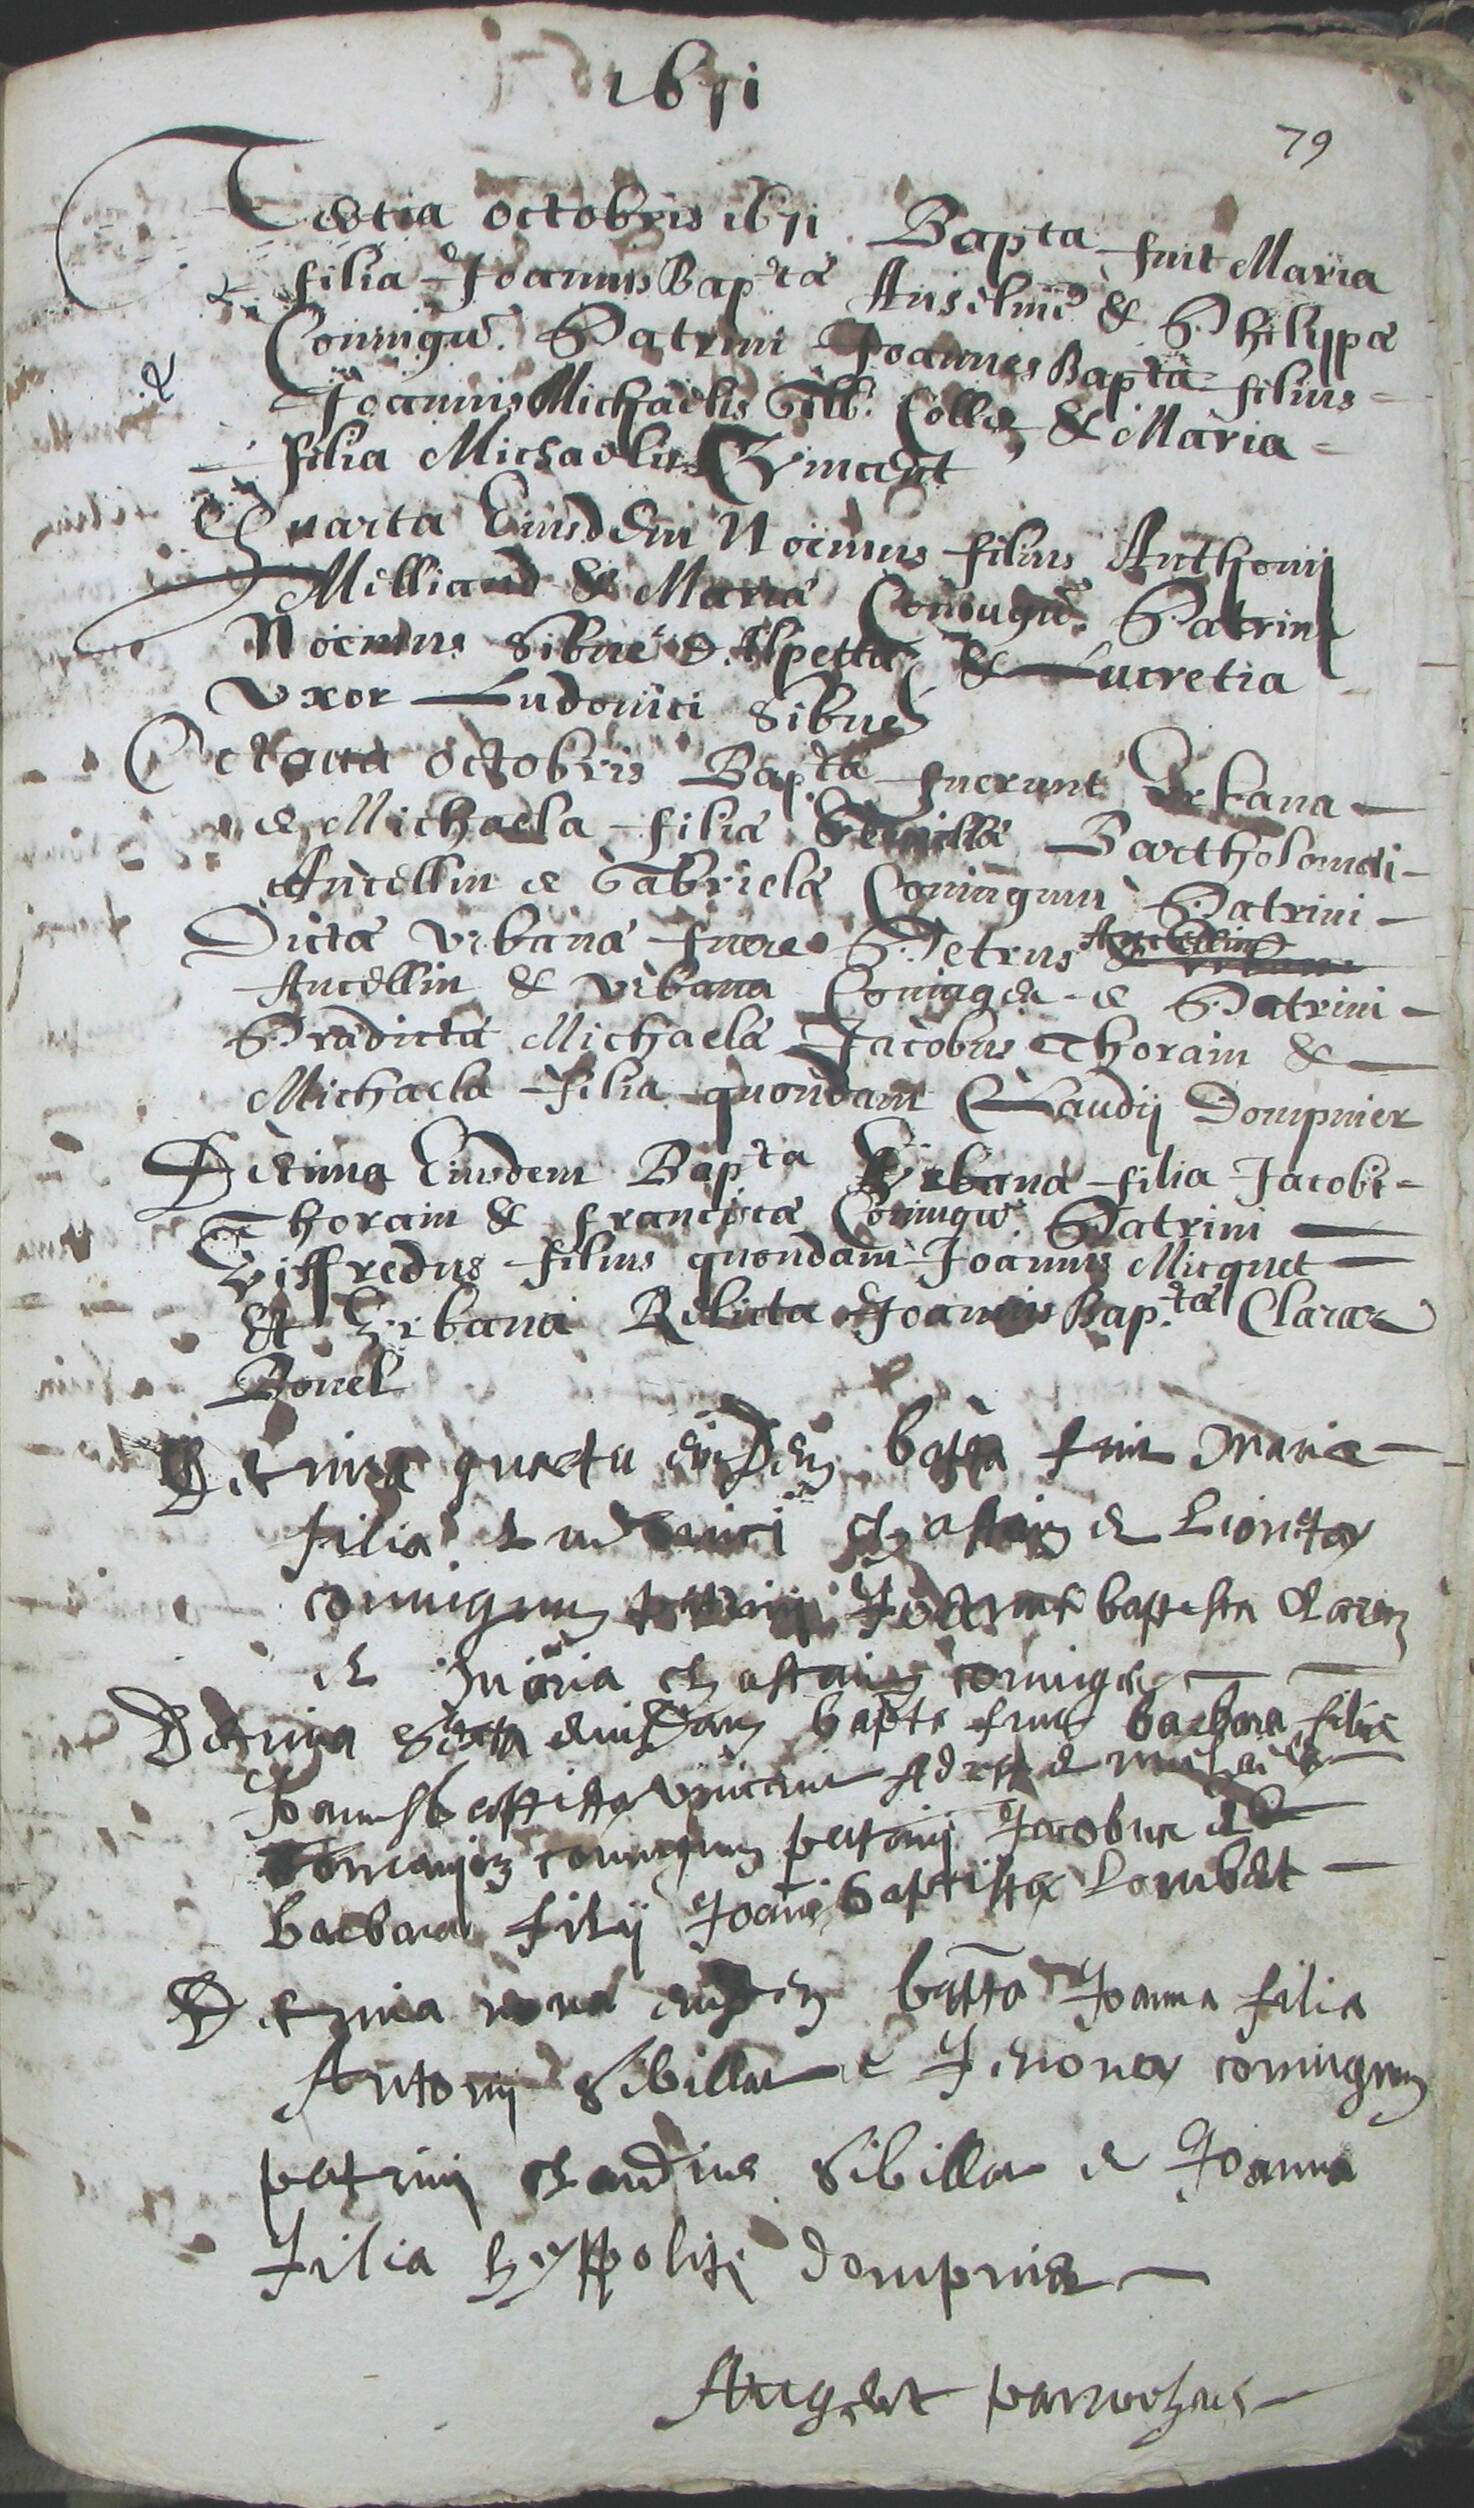 1671
79
Tertia octobris 1671 Bapta fuit Maria
filia Joannis Baptæ Anselmii & Philippæ
Coniugū. Patrini Joannes Bapta filius
Joannis Michaelis Collet, & Maria
filia Michaelis Vincent
Quarta Eiusdem Noemus filius Anthonij
Milliand & Mariæ Coniugū. Patrini
Noemus Sibue D. Alpettaz & Lucretia
Uxor Ludovici Sibue
Octava octobris Baptæ fuerunt Urbana
& Michaela filiæ Bartholomei
Ancellin & Gabrielæ Coniugum Patrini
Dictæ Urbanæ fuere Petrus Ancellin
Ancellin & Urbana Coniuges & Patrini
Prædictæ Michaelæ Jacobus Thorain &
Michaela filia quondam Claudij Dompnier
Decima Eiusdem Bapta Urbana filia Jacobi
Thorain & franciscæ Coniugū Patrini
Viffredus filius quondam Joannis Micquet
Et Urbana Relicta Joannis Baptæ Claraz
Bonel
Decima quarta eiusdem bapta fuit Maria
filia Ludovici Chastain & Lionetæ
coniugum patrinj Joannes baptista Claraz
& Maria Chastaing coniuges
Decima Sexta eiusdem bapta fuit barbara filia
Joannis baptistæ Vincent &
coniugum patrinj Jacobus &
barbara filij Joannis baptistæ Lombart
Decima nona eiusdem bapta Joanna filia
Antonij Sibillat & coniugum
patrinj Claudius Sibillat & Joanna
filia hyppoliti dompnier
Augert parrochus